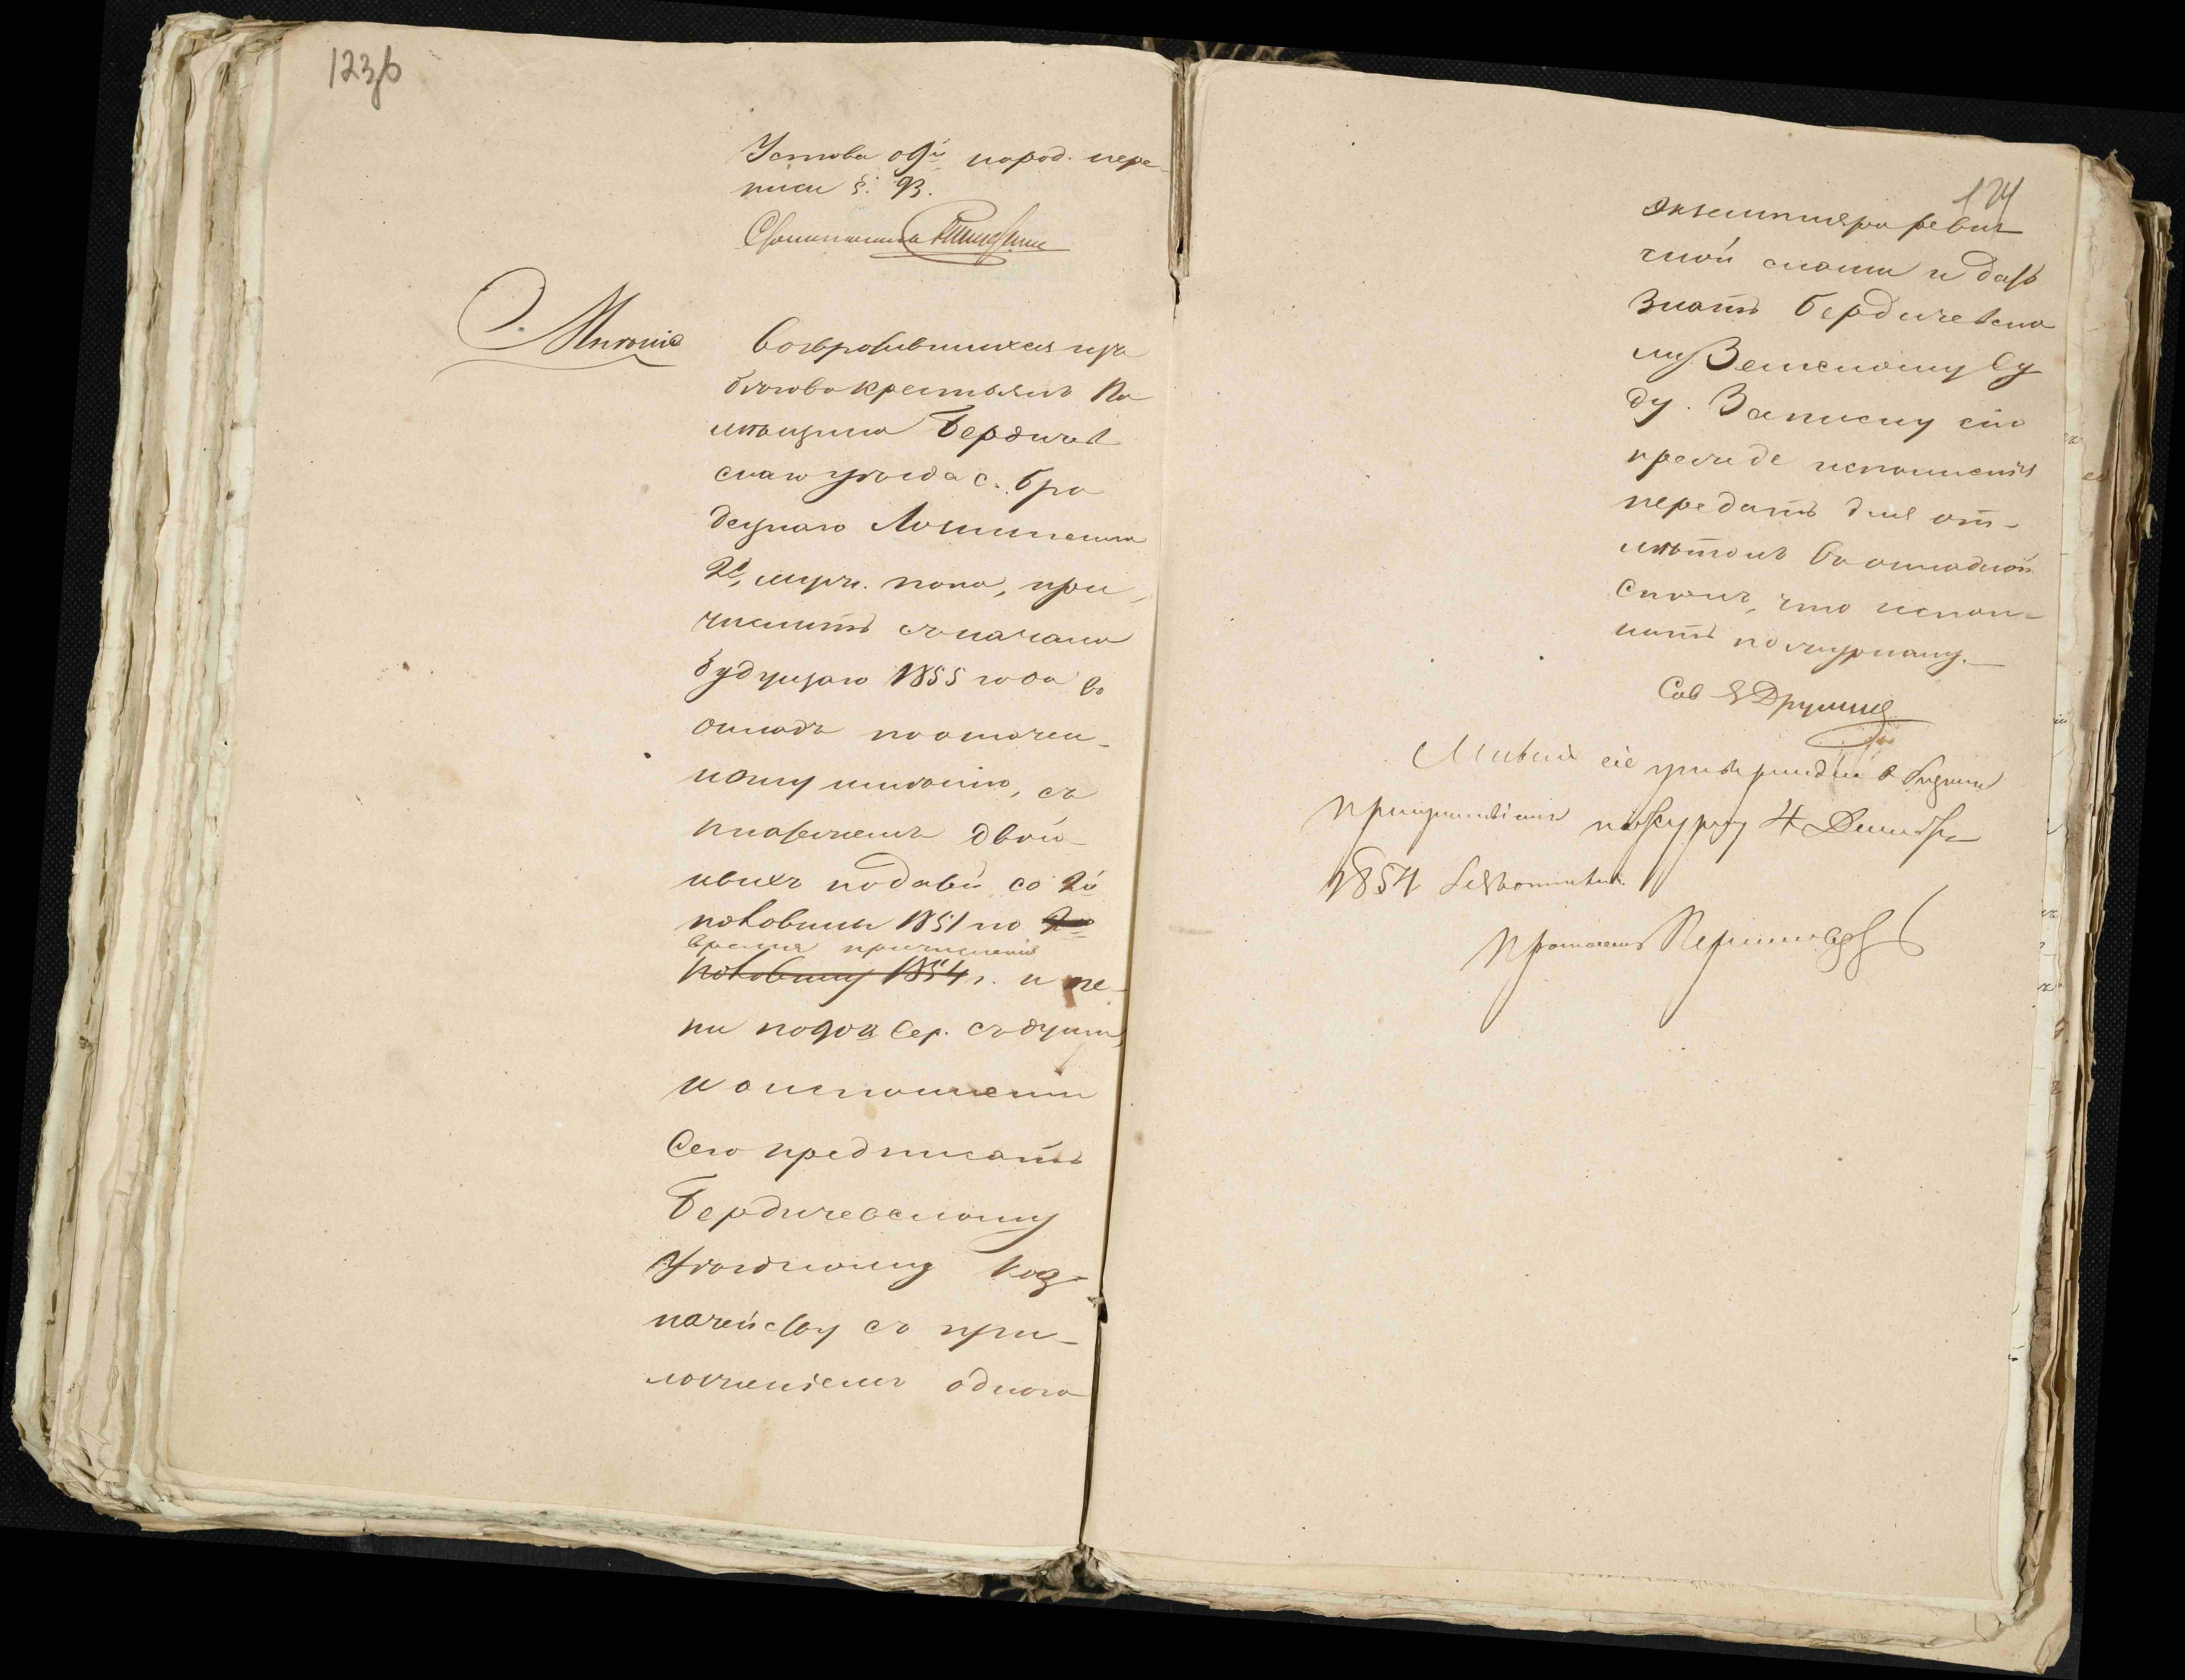 123б
Устава о 9й народ. пере
писи §. 93.
Столоначальник
Мнѣніе
Возвратившихся изъ
бѣговъ крестьянъ По
мѣщика Бердичев
скаго уѣзда с.
2х муж. пола, при
числить съ начала
будущаго 1855 года въ
окладъ по означен
ному имѣнію, съ
платежемъ двой
ныхъ податей со 2й
половины 1851 по 2ю
время причисленія
половину 1854 г. и пе
ни по 90 к. сер. съ души,
и о исполненіи
Сего предписать
Бердичевскому
Уѣздному Каз-
начейству съ при-
ложеніемъ одного
124
экземпляра ревиз
ской сказки и дать
знать Бердичевско
му Земскому Су
ду. Записку сію
прежде исполненія
передать для от-
мѣтокъ въ окладной
Столъ, что испол-
нить по журналу.
Сов
Мнѣніе сіе утверждено въ Казенн
присутствіемъ по журналу 4 Декабря
1854